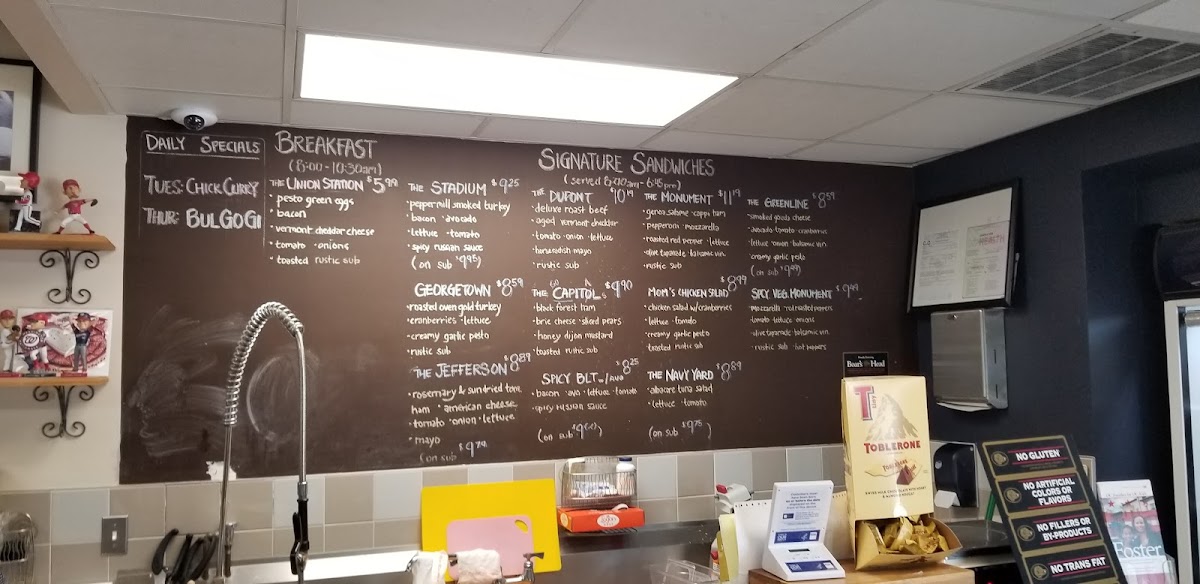 DAILY SPECIALS
TUES: CHICK CURRY
THUR: BULGOGI
BREAKFAST
(8:00 - 10:30am)
THE UNION STATION $5.99
• pesto green eggs
• bacon
• vermont cheddar cheese
• tomato • onions
• toasted rustic sub
SIGNATURE SANDWICHES
THE STADIUM $9.25
• peppermill smoked turkey
• bacon • avocado
• lettuce • tomato
• spicy russian sauce
(on sub $9.95)
GEORGETOWN $8.59
• roasted oven gold turkey
• cranberries • lettuce
• creamy garlic pesto
• rustic sub
THE JEFFERSON $8.89
• rosemary & sundried tom.
ham • american cheese
• tomato • onion • lettuce
• mayo
(on sub
THE DUPONT $10.19
• deluxe roast beef
• aged vermont cheddar
• tomato • onion • lettuce
• horseradish mayo
• rustic sub
THE CAPITOL $9.90
• black forest ham
• brie cheese • sliced pears
• honey dijon mustard
• toasted rustic sub
SPICY BLT w/ AVO $8.25
• bacon • avo • lettuce • tomato
• spicy russian sauce
(on sub
THE MONUMENT $11.19
• genoa salame • coppa ham
• pepperoni • mozzarella
• roasted red pepper • lettuce
• olive tapanade • balsamic vin.
• rustic sub
MOM'S CHICKEN SALAD $8.99
• chicken salad w/ cranberries
• lettuce • tomato
• creamy garlic pesto
• toasted rustic sub
THE NAVY YARD $8.89
• albacore tuna salad
• lettuce • tomato
(on sub $9.75)
THE GREENLINE $8.59
• smoked gouda cheese
• avocado • tomato • cranberries
• lettuce • onion • balsamic vin.
• creamy garlic pesto
(on sub $9.99)
SPICY VEG. MONUMENT $9.99
• mozzarella • red roasted peppers
• tomato • lettuce • onions
• olive tapanade • balsamic vin.
• rustic sub • hot peppers
Boar's Head
TOBLERONE
NO GLUTEN
NO ARTIFICIAL
COLORS OR
FLAVORS
NO FILLERS OR
BY-PRODUCTS
NO TRANS FAT
Foster